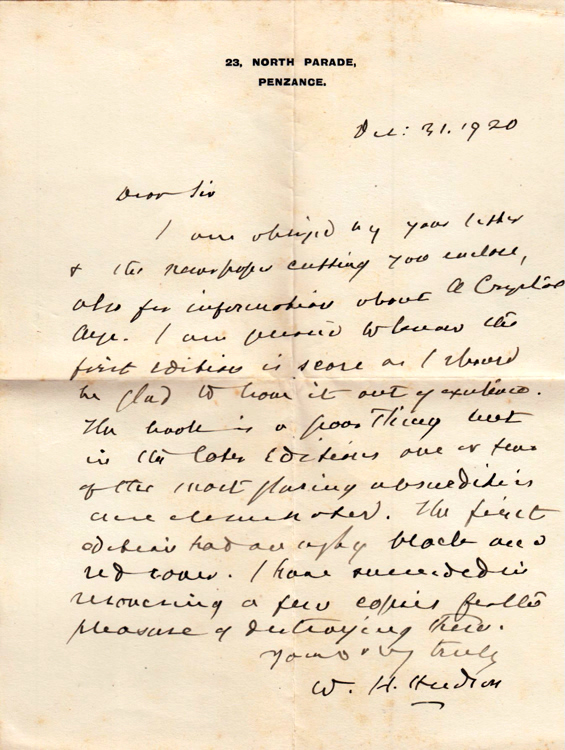 23, NORTH PARADE,
PENZANCE.
Oct: 31. 1920
Dear Sir
I am obliged by your letter
& the newspaper cutting you enclose,
also for information about A Crystal
Age. I am pleased to know the
first edition is scarce as I should
be glad to have it out of existence.
The book is a poor thing but
in the later editions one or two
of the most glaring absurdities
are eliminated. The first
edition had an ugly black and
red cover. I have succeeded in
recovering a few copies for the
pleasure of destroying them.
Yours truly
W. H. Hudson